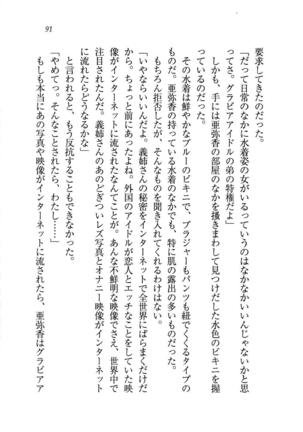 91
要求してきたのだった。
「だって日常のなかに水着姿の女がいるっていうのはなかなかいいんじゃないかと思
ってさ。グラビアアイドルの弟の特権だよ」
しかも、手には亜弥香の部屋のなかを掻きまわして見つけだした水色のビキニを握
っているのだった。
その水着は鮮やかなブルーのビキニで、ブラジャーもパンツも紐でくくるタイプの
もので、亜弥香の持っている水着のなかでも、特に肌の露出の多いものだった。
もちろん そんな を聞き入れてくれるわけはない。
「いやならいいんだよ。義姉さんの秘密をインターネットで全世界にばらまくだけだ
から。ちょっと前にあったよね。外国のアイドルが恋人とエッチなことをしていた映
像がインターネットに流されたなんてことが。あんな不鮮明な映像でさえ、世界中で
注目されたんだ。義姉さんのあのどぎついレズ写真とオナニー映像がインターネット
に流れたらどうなるかな」
と言われると、もう反抗することもできなかった。
「やめてっ。そんなことされたら、わたし……」
もしも本当にあの写真や映像がインターネットに流されたら、亜弥香はグラビアア